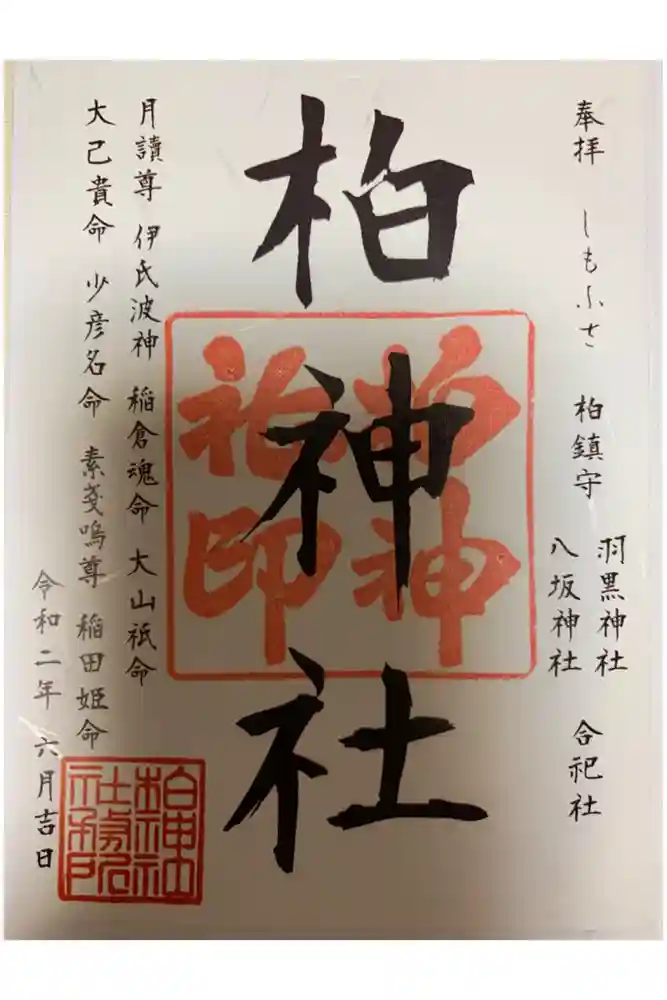 奉拝 しもふさ 柏鎮守
羽黒神社
八坂神社
合祀社
柏神社
月讀尊 伊氏波神 稲倉魂命 大山祇命
大己貴命 少彦名命 素戔嗚尊 稲田姫命
令和二年 六月吉日
柏神
社印
柏神社
社務所